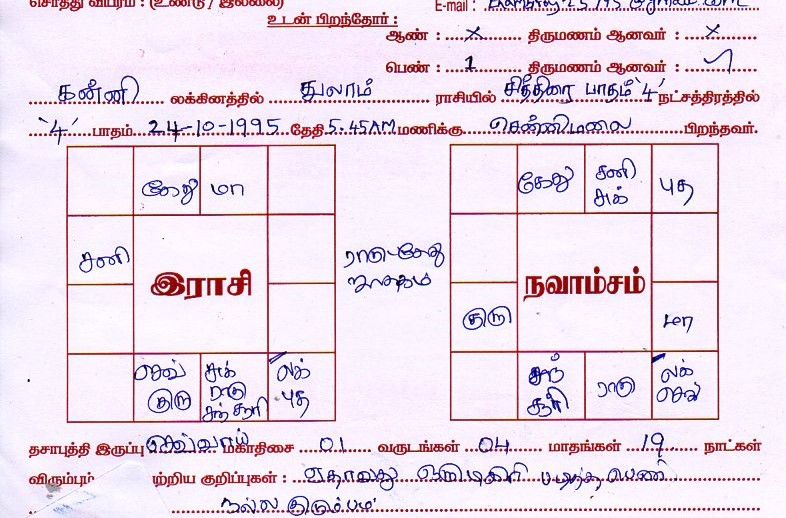 சொத்து விபரம் : (உண்டு / இல்லை)
E-mail :
உடன் பிறந்தோர் :
ஆண் : x திருமணம் ஆனவர் : x
பெண் : 1 திருமணம் ஆனவர் :
கன்னி லக்கினத்தில் துலாம் ராசியில் சித்திரை பாதம் '4' நட்சத்திரத்தில்
'4' பாதம் 24-10-1995 தேதி 5.45AM மணிக்கு சென்னிமலை பிறந்தவர்.
கேது மா
சனி
இராசி
செவ் குரு
சுக் ராகு சந் சூரி
லக் புத
ராகு-கேது ஜாதகம்
கேது சனி சுக் புத
நவாம்சம்
குரு மா
சந் சூரி
ராகு
லக் செவ்
தசாபுத்தி இருப்பு செவ்வாய் மகாதிசை 01 வருடங்கள் 04 மாதங்கள் 19 நாட்கள்
விரும்பும் ற்றிய குறிப்புகள் : ஏதாவது ஒரு டிகிரி படித்த பெண்
நல்ல குடும்பம்